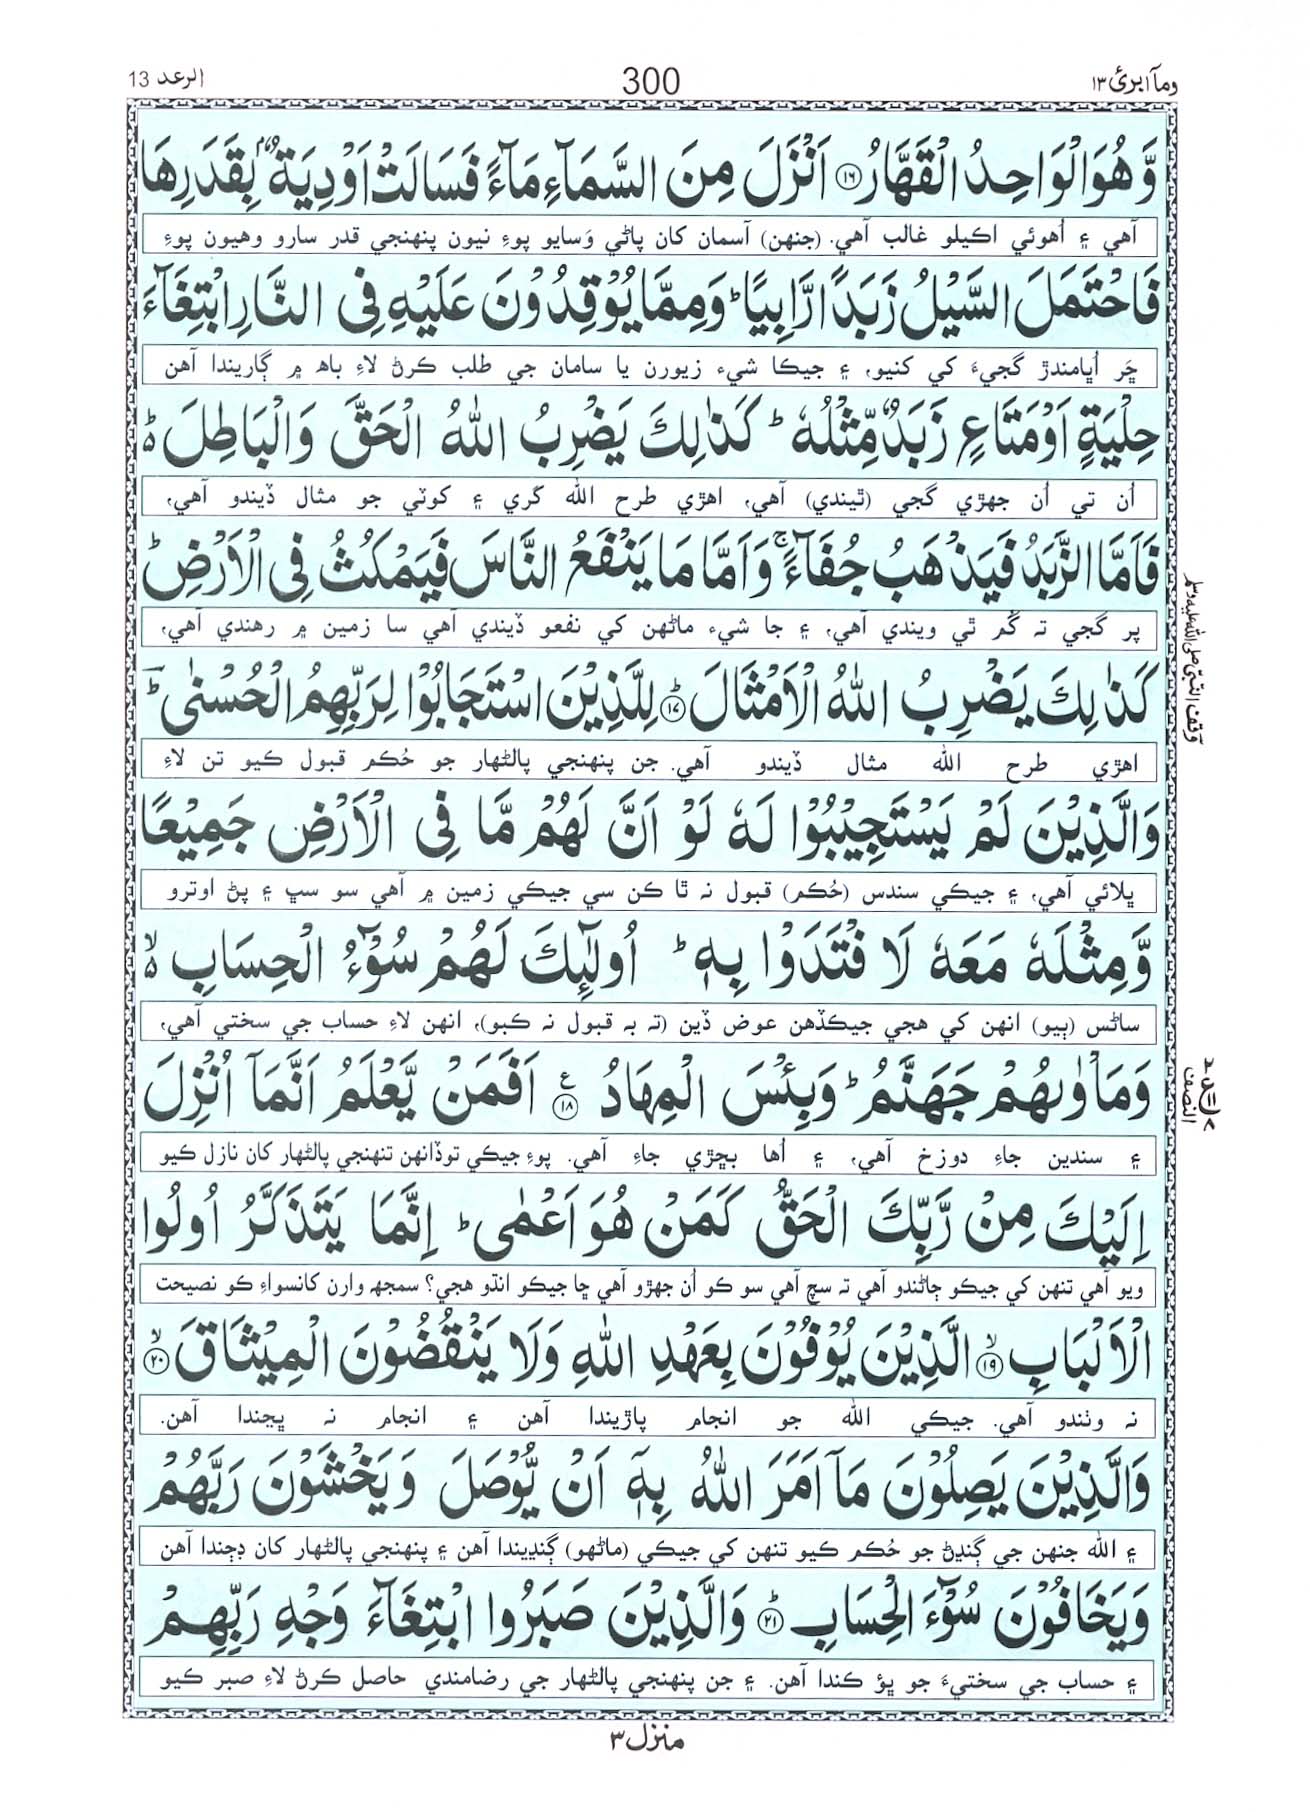 ومآ ابرئ ١٣
300
الرعد 13
وَّهُوَ الْوَاحِدُ الْقَهَّارُ ﴿١٦﴾ اَنْزَلَ مِنَ السَّمَآءِ مَآءً فَسَالَتْ اَوْدِيَةٌۢ بِقَدَرِهَا
آهي ۽ اُهوئي اڪيلو غالب آهي. (جنهن) آسمان کان پاڻي وَسايو پوءِ نيون پنهنجي قدر سارو وهيون پوءِ
فَاحْتَمَلَ السَّيْلُ زَبَدًا رَّابِيًا ؕ وَمِمَّا يُوْقِدُوْنَ عَلَيْهِ فِى النَّارِ ابْتِغَآءَ
چَر اُڀامندڙ گجيءَ کي کنيو، ۽ جيڪا شيء زيورن يا سامان جي طلب ڪرڻ لاءِ باھ ۾ ڳاريندا آهن
حِلْيَةٍ اَوْ مَتَاعٍ زَبَدٌ مِّثْلُهٗ ؕ كَذٰلِكَ يَضْرِبُ اللّٰهُ الْحَقَّ وَالْبَاطِلَ ؕ۬
اُن تي اُن جهڙي گجي (ٿيندي) آهي، اهڙي طرح الله کَري ۽ کوٽي جو مثال ڏيندو آهي،
فَاَمَّا الزَّبَدُ فَيَذْهَبُ جُفَآءً ۚ وَاَمَّا مَا يَنْفَعُ النَّاسَ فَيَمْكُثُ فِى الْاَرْضِ ؕ
پر گجي ته گُم ٿي ويندي آهي، ۽ جا شيء ماڻهن کي نفعو ڏيندي آهي سا زمين ۾ رهندي آهي،
وقف النبي صلى الله عليه وسلم
كَذٰلِكَ يَضْرِبُ اللّٰهُ الْاَمْثَالَ ﴿١٧﴾ؕ لِلَّذِيْنَ اسْتَجَابُوْا لِرَبِّهِمُ الْحُسْنٰى ؔؕ
اهڙي طرح الله مثال ڏيندو آهي. جن پنهنجي پالڻهار جو حُڪم قبول ڪيو تن لاءِ
وَالَّذِيْنَ لَمْ يَسْتَجِيْبُوْا لَهٗ لَوْ اَنَّ لَهُمْ مَّا فِى الْاَرْضِ جَمِيْعًا
ڀلائي آهي، ۽ جيڪي سندس (حُڪم) قبول نہ ٿا ڪن سي جيڪي زمين ۾ آهي سو سڀ ۽ پڻ اوترو
وَّمِثْلَهٗ مَعَهٗ لَا فْتَدَوْا بِهٖ ؕ اُولٰٓئِكَ لَهُمْ سُوْٓءُ الْحِسَابِ ۙ۬
ساڻس (ٻيو) انهن کي هجي جيڪڏهن عوض ڏين (تہ بہ قبول نہ ڪبو)، انهن لاءِ حساب جي سختي آهي،
وَمَاْوٰىهُمْ جَهَنَّمُ ؕ وَبِئْسَ الْمِهَادُ ﴿١٨﴾ ع اَفَمَنْ يَّعْلَمُ اَنَّمَآ اُنْزِلَ
النصف
۽ سندين جاءِ دوزخ آهي، ۽ اُها بڇڙي جاءِ آهي. پوءِ جيڪي توڏانهن تنهنجي پالڻهار کان نازل ڪيو
اِلَيْكَ مِنْ رَّبِّكَ الْحَقُّ كَمَنْ هُوَ اَعْمٰى ؕ اِنَّمَا يَتَذَكَّرُ اُولُوا
ويو آهي تنهن کي جيڪو ڄاڻندو آهي تہ سچ آهي سو ڪو اُن جهڙو آهي ڇا جيڪو انڌو هجي؟ سمجهہ وارن کانسواءِ ڪو نصيحت
الْاَلْبَابِ ﴿١٩﴾ۙ الَّذِيْنَ يُوْفُوْنَ بِعَهْدِ اللّٰهِ وَلَا يَنْقُضُوْنَ الْمِيْثَاقَ ﴿٢٠﴾ۙ
نہ وٺندو آهي. جيڪي الله جو انجام پاڙيندا آهن ۽ انجام نہ ڀڃندا آهن.
وَالَّذِيْنَ يَصِلُوْنَ مَآ اَمَرَ اللّٰهُ بِهٖٓ اَنْ يُّوْصَلَ وَيَخْشَوْنَ رَبَّهُمْ
۽ الله جنهن جي ڳنڍڻ جو حُڪم ڪيو تنهن کي جيڪي (ماڻهو) ڳنڍيندا آهن ۽ پنهنجي پالڻهار کان ڊڄندا آهن
وَيَخَافُوْنَ سُوْٓءَ الْحِسَابِ ﴿٢١﴾ؕ وَالَّذِيْنَ صَبَرُوا ابْتِغَآءَ وَجْهِ رَبِّهِمْ
۽ حساب جي سختيءَ جو ڀؤ ڪندا آهن. ۽ جن پنهنجي پالڻهار جي رضامندي حاصل ڪرڻ لاءِ صبر ڪيو
منزل ٣